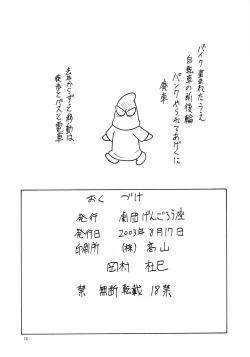 バイク盗まれたうえ
自転車の前後輪
パンクやられてあげくに
廃車
去年からずっと移動は
徒歩とバスと電車
おくづけ
発行 劇団げんごろう座
発行日 2003年8月17日
印刷所 (株)高山
岡村 杜巳
禁 無断転載 18禁